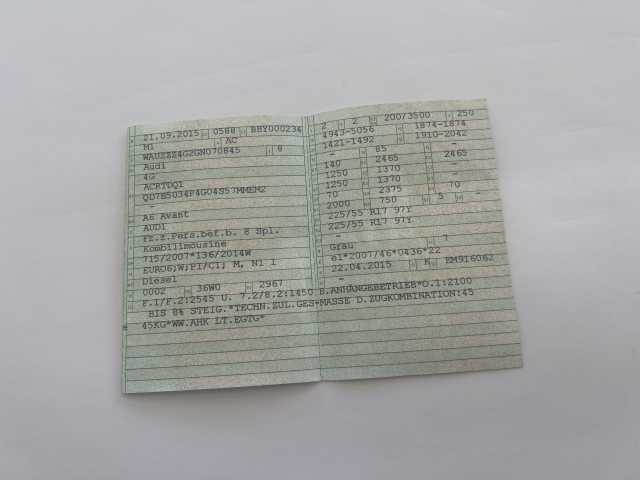 21.09.2015 0588 BHY000234
M1 AC
WAUZZZ4G2GN070845 8
Audi
4G
ACRTDQ1
QD7B5034F4G04S57MMEM2
-
A6 Avant
AUDI
Fz.z.Pers.bef.b. 8 Spl.
Kombilimousine
715/2007*136/2014W
EURO6;W;PI/CI; M, N1 I
Diesel
0002 36W0 2967
F.1/F.2:2545 U. 7.2/8.2:1450 B.ANHÄNGEBETRIEB*O.1:2100
BIS 8% STEIG.*TECHN.ZUL.GES-MASSE D.ZUGKOMBINATION:45
45KG*WW.AHK LT.EGTG*
2 2 200/3500 250
4943-5056 1874-1874
1421-1492 1910-2042
- 85 -
140 2465 2465
1250 1370 -
1250 1370 -
70 2375 70
2000 750 5 -
225/55 R17 97Y
225/55 R17 97Y
-
Grau 7
e1*2007/46*0436*22
22.04.2015 K EM916062
-